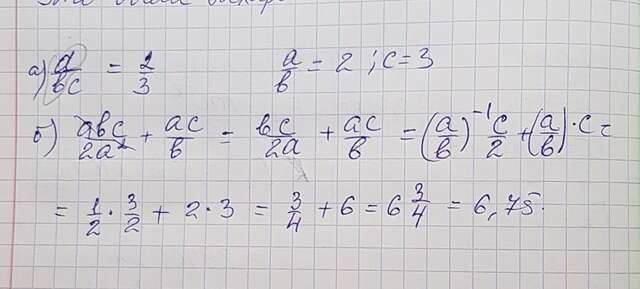 а) a/bc = 2/3   a/b = 2 ; c = 3
б) abc/2a² + ac/b = bc/2a + ac/b = (a/b)⁻¹ c/2 + (a/b) · c =
= 1/2 · 3/2 + 2 · 3 = 3/4 + 6 = 6 3/4 = 6,75.